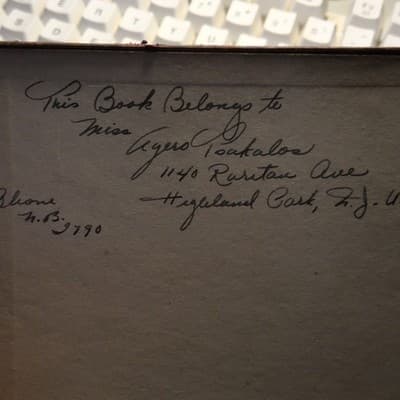 This Book Belongs to
Miss
Ayero Tsakalos
1140 Raritan Ave
Highland Park, N.J. U
Phone
N.B.
2790